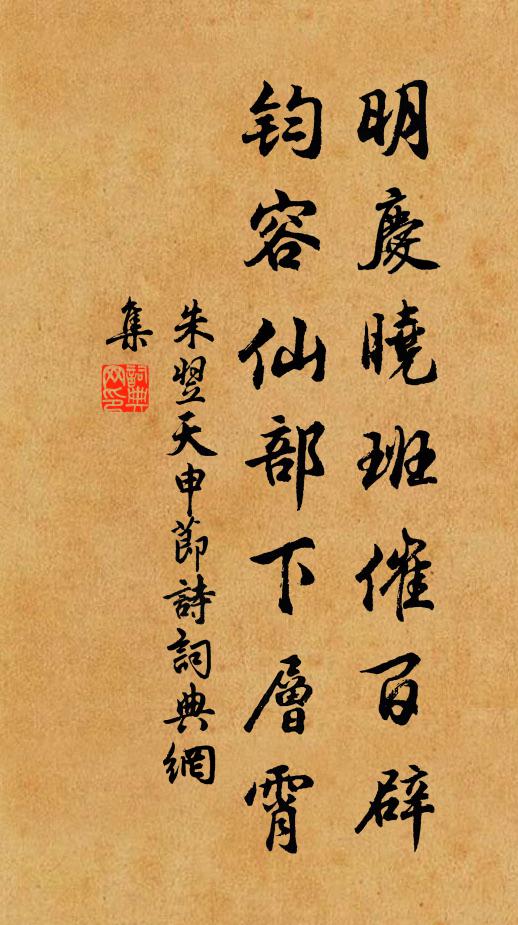 明慶曉班催百辟
鈞容仙部下層霄
朱翌天申節詩詞典網
集
詞典網印